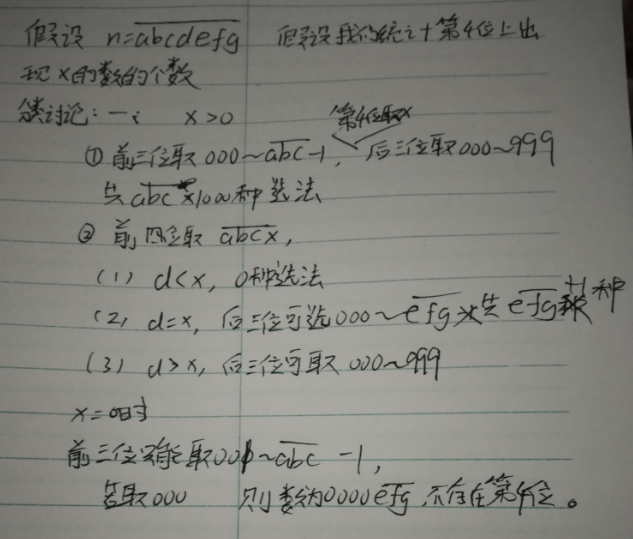 假设 n=abcdefg 假设我们统计第4位上出
现x的数的个数
分类讨论: 一: x>0
第4位取x
① 前三位取000~abc-1, 后三位取000~999
共abc×1000种选法
② 前四位取 abcx,
(1) d<x, 0种选法
(2) d=x, 后三位可选000~efg 共efg+1种
(3) d>x, 后三位可取 000~999
x=0时
前三位只能取001~abc -1,
若取000 则数为0000efg, 不存在第4位。